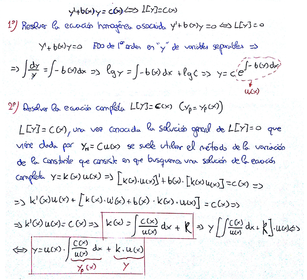 y'+b(x)y = c(x) ⟺ L[y]=c(x)
1º) Resolver la ecuación homogénea asociada y'+b(x)y=0 ⟺ L[y]=0
y'+b(x)y=0 EDO de 1º orden en "y" de variables separables ⟹
⟹ ∫dy/y = ∫-b(x)dx ⟹ lg y = ∫-b(x)dx + lg C ⟹ y = C e^∫-b(x)dx
u(x)
2º) Resolver la ecuación completa L[y]=c(x) (yp = yp(x))
L[y]=c(x), una vez conocida la solución general de L[y]=0 que
viene dada por yh=Cu(x) se suele utilizar el método de la variación
de las constantes que consiste en que busquemos una solución de la ecuación
completa y=k(x)u(x) ⟹ [k(x)u(x)]'+b(x)·[k(x)u(x)]=c(x) ⟹
⟹ k'(x)u(x)+[k(x)·u'(x)+b(x)·k(x)u(x)]=c(x) ⟹
⟹ k'(x)u(x)=c(x) ⟹ k(x)=∫c(x)/u(x) dx + k ⟹ y=[∫c(x)/u(x) dx + k]·u(x) ⟺
⟺ y=u(x)·∫c(x)/u(x) dx + k·u(x)
yp(x) Y